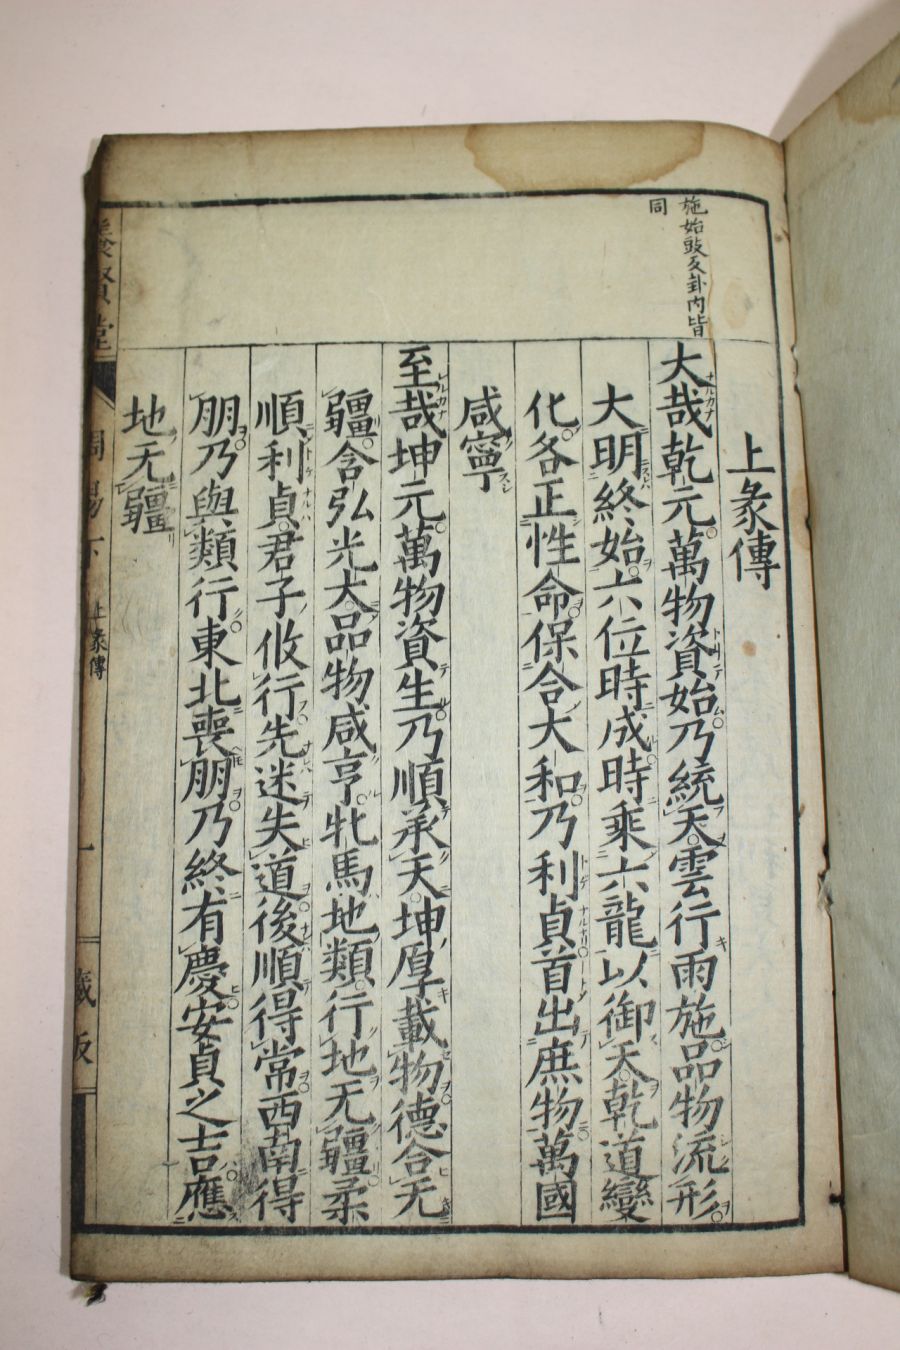 施始豉反卦内皆
同
上彖傳
大哉乾元萬物資始乃統天雲行雨施品物流形
大明終始六位時成時乘六龍以御天乾道變
化各正性命保合大和乃利貞首出庶物萬國
咸寧
至哉坤元萬物資生乃順承天坤厚載物德合无
疆含弘光大品物咸亨牝馬地類行地无疆柔
順利貞君子攸行先迷失道後順得常西南得
朋乃與類行東北喪朋乃終有慶安貞之吉應
地无疆
上彖傳
藏版